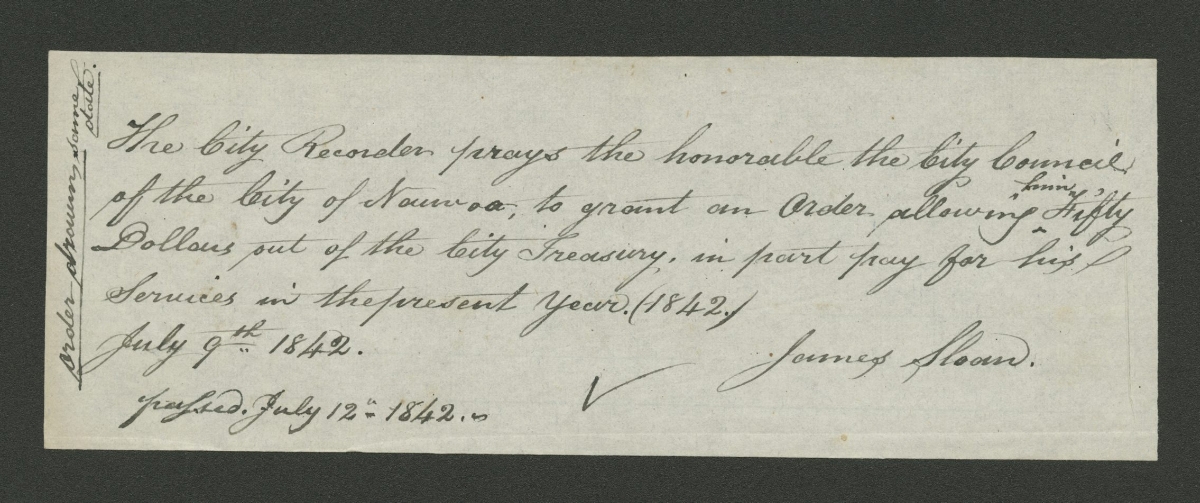 The City Recorder prays the honorable the City Council
of the City of Nauvoo, to grant an Order allowing him Fifty
Dollars out of the City Treasury, in part pay for his
Services in the present Year. (1842.)
July 9th 1842.
James Sloan.
passed. July 12" 1842.
order drawn same
date.